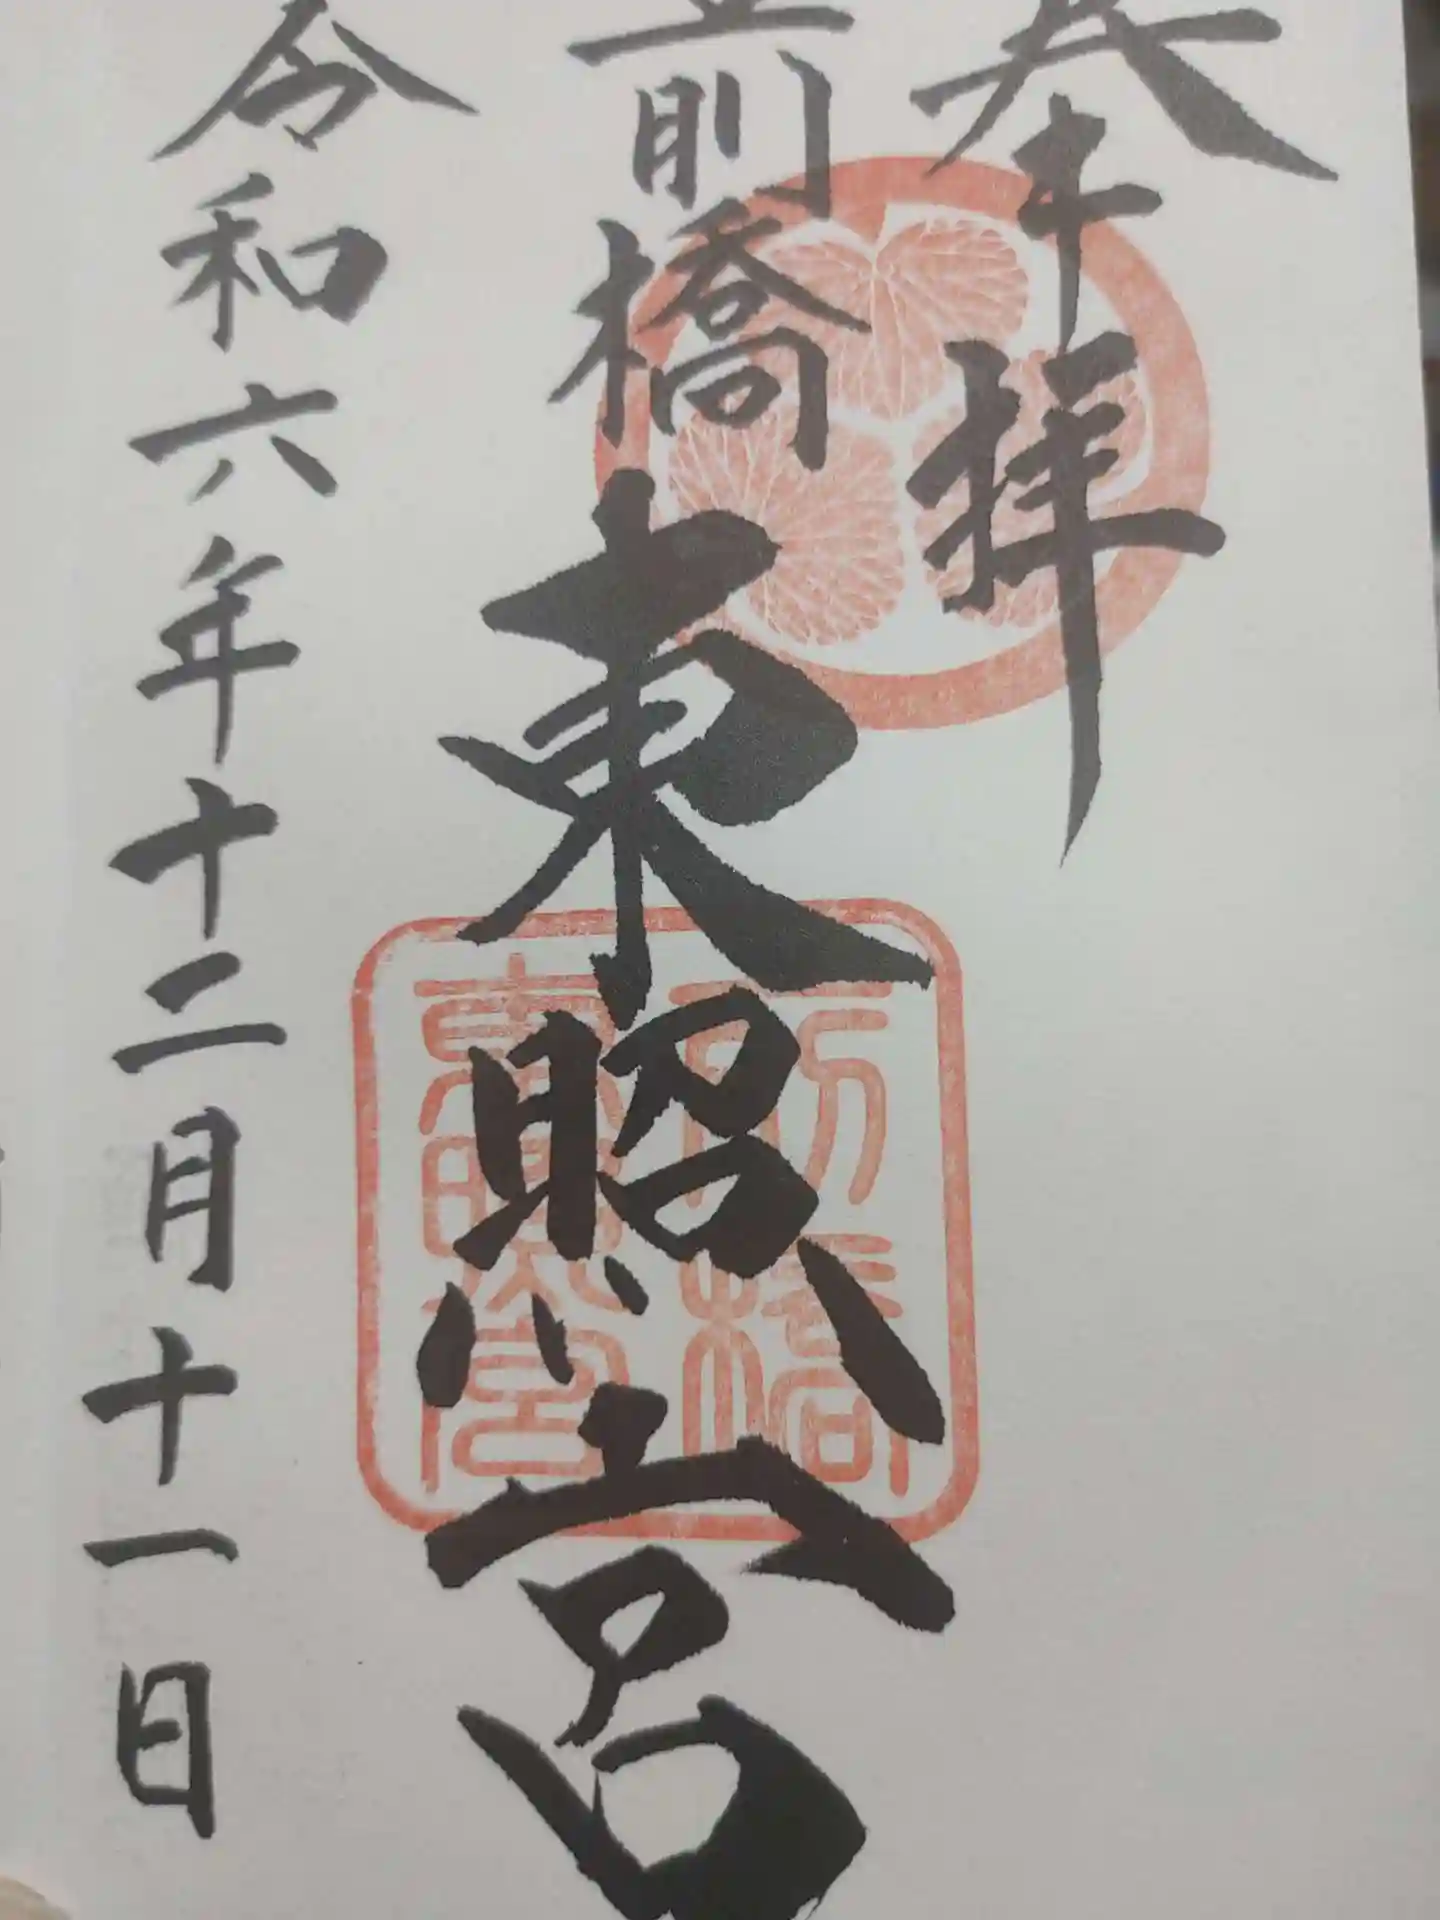 奉拝
前橋東照宮
令和六年十二月十一日
前橋
東照宮